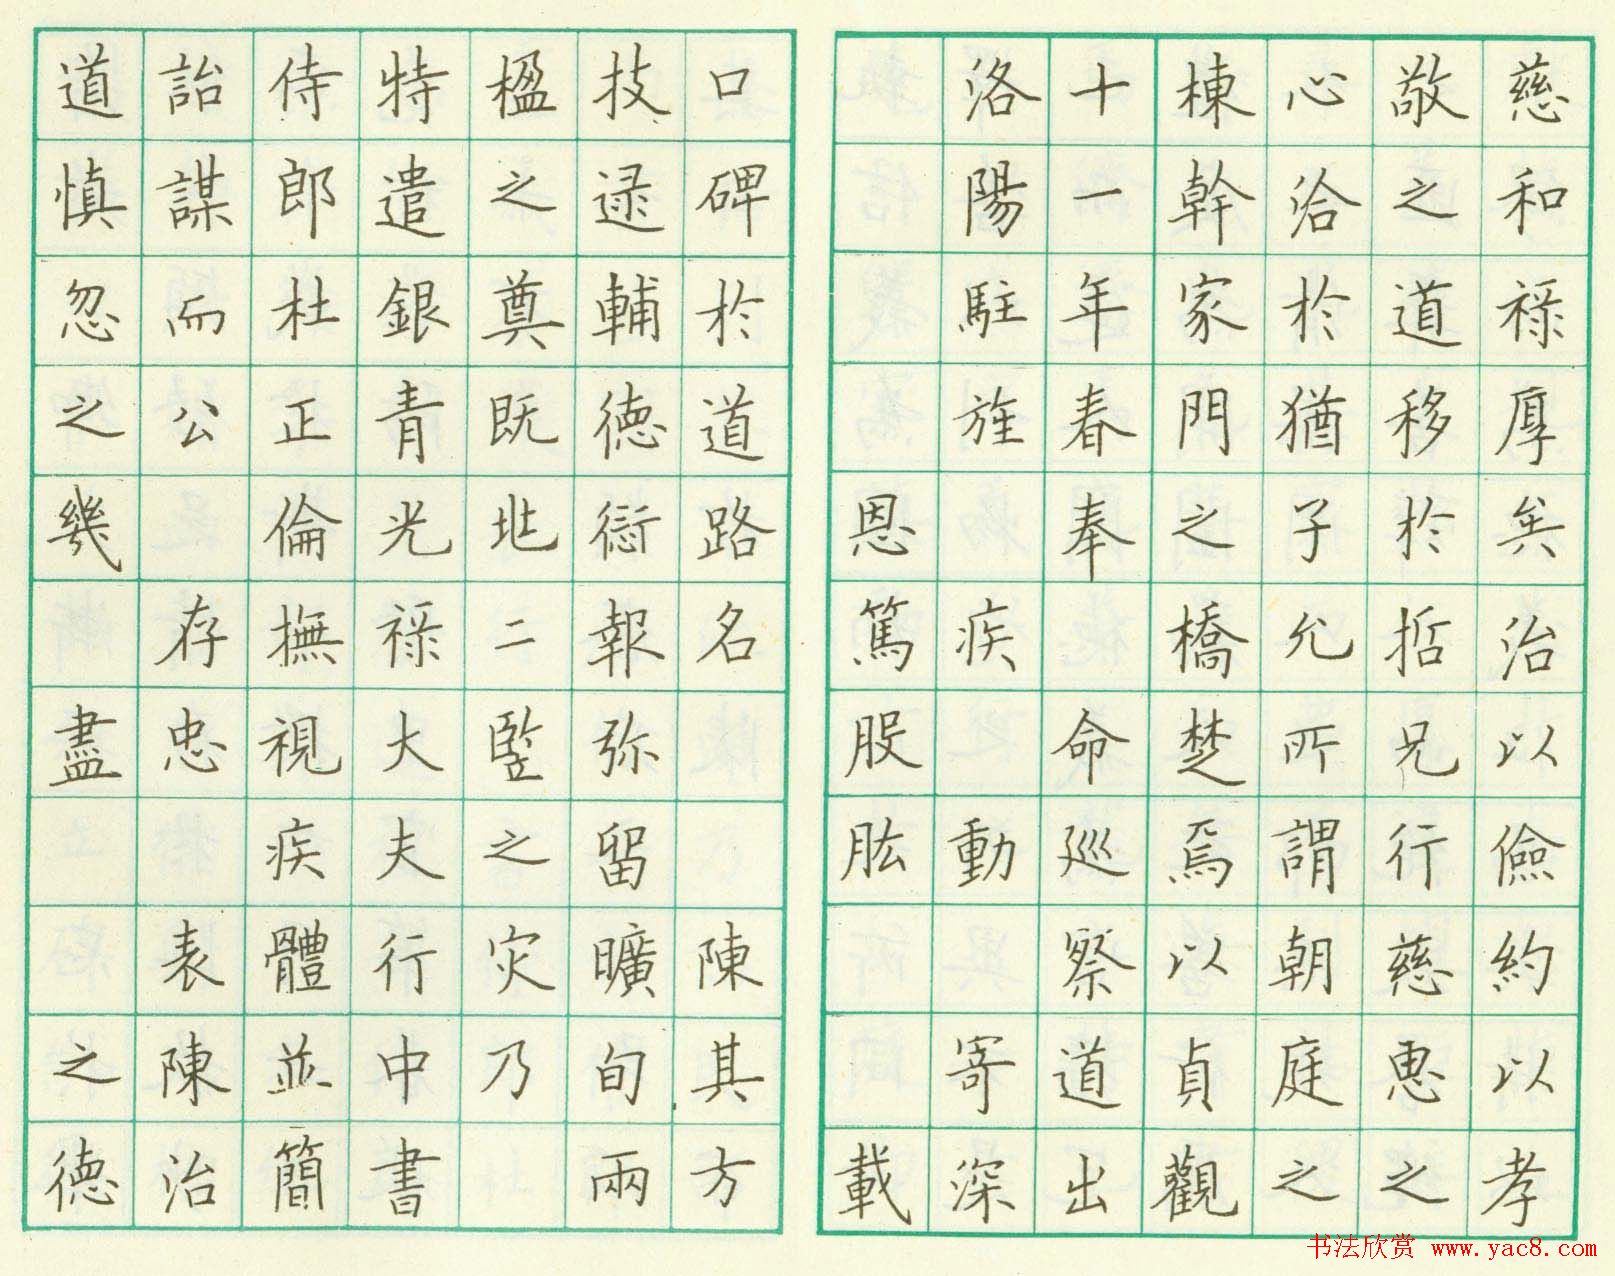 慈和祿厚矣治以儉約以孝
敬之道移於哲兄行慈恵之
心洽於猶子允所謂朝庭之
棟幹家門之橋楚焉以貞觀
十一年春奉 命巡察道出
洛陽駐旌 疾 動 寄深
恩篤股肱 載
口碑於道路名 陳其方
技逯輔德愆報弥留曠旬兩
楹之奠既兆二竪之灾乃
特遣銀青光祿大夫行中書
侍郎杜正倫撫視疾體並簡
詒謀而公 存忠 表陳治
道慎忽之幾 盡 之德
书法欣赏 www.yac8.com